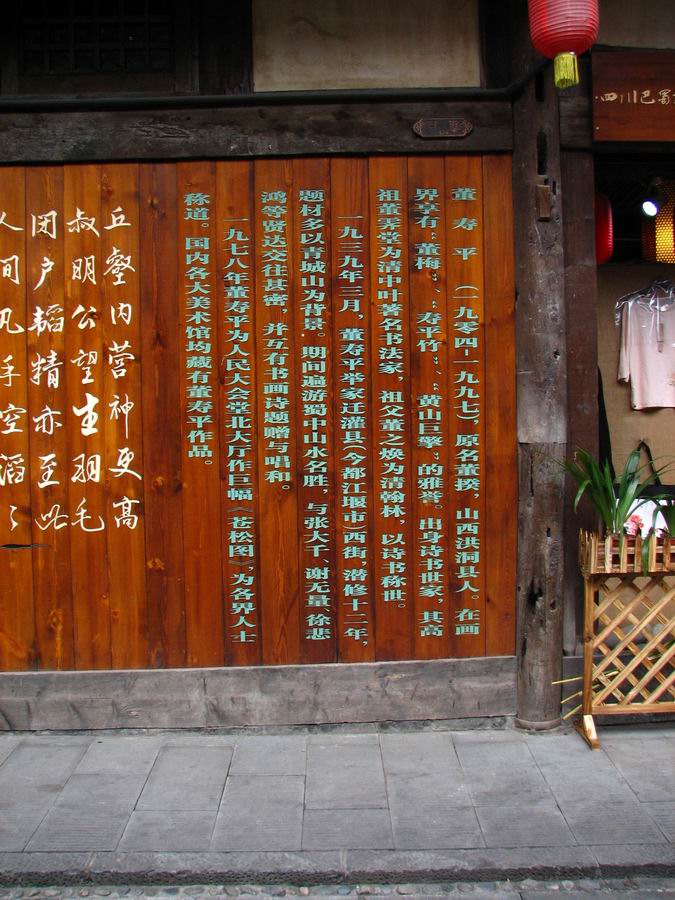 董寿平（一九零四-一九九七），原名董揆，山西洪洞县人。在画
界享有“董梅”、“寿平竹”、“黄山巨擘”的雅誉。出身诗书世家，其高
祖董霁堂为清中叶著名书法家，祖父董之焕为清翰林，以诗书称世。
一九三九年三月，董寿平举家迁灌县（今都江堰市）西街，潜修十二年，
题材多以青城山为背景。期间遍游蜀中山水名胜，与张大千、谢无量、徐悲
鸿等贤达交往甚密，并互有书画诗题赠与唱和。
一九七八年董寿平为人民大会堂北大厅作巨幅《苍松图》，为各界人士
称道。国内各大美术馆均藏有董寿平作品。
丘壑内营神更高
叔明公望生羽毛
闭户韬精亦至此
人间凡手空滔滔
四川巴蜀